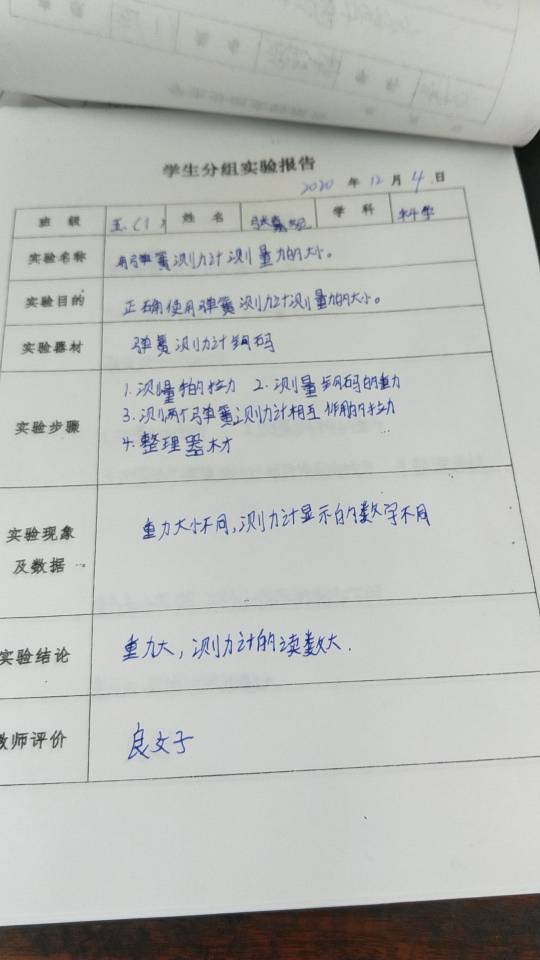 学生分组实验报告
2020 年 12 月 4 日
班 级 五.(1) 姓 名 学 科 科学
实验名称 用弹簧测力计测量力的大小。
实验目的 正确使用弹簧测力计测量力的大小。
实验器材 弹簧测力计 钩码
实验步骤 1.测量手的拉力 2.测量钩码的重力
3.测两个弹簧测力计相互作用的拉力
4.整理器材
实验现象及数据 重力大小不同,测力计显示的数字不同
实验结论 重力大,测力计的读数大.
教师评价 良好